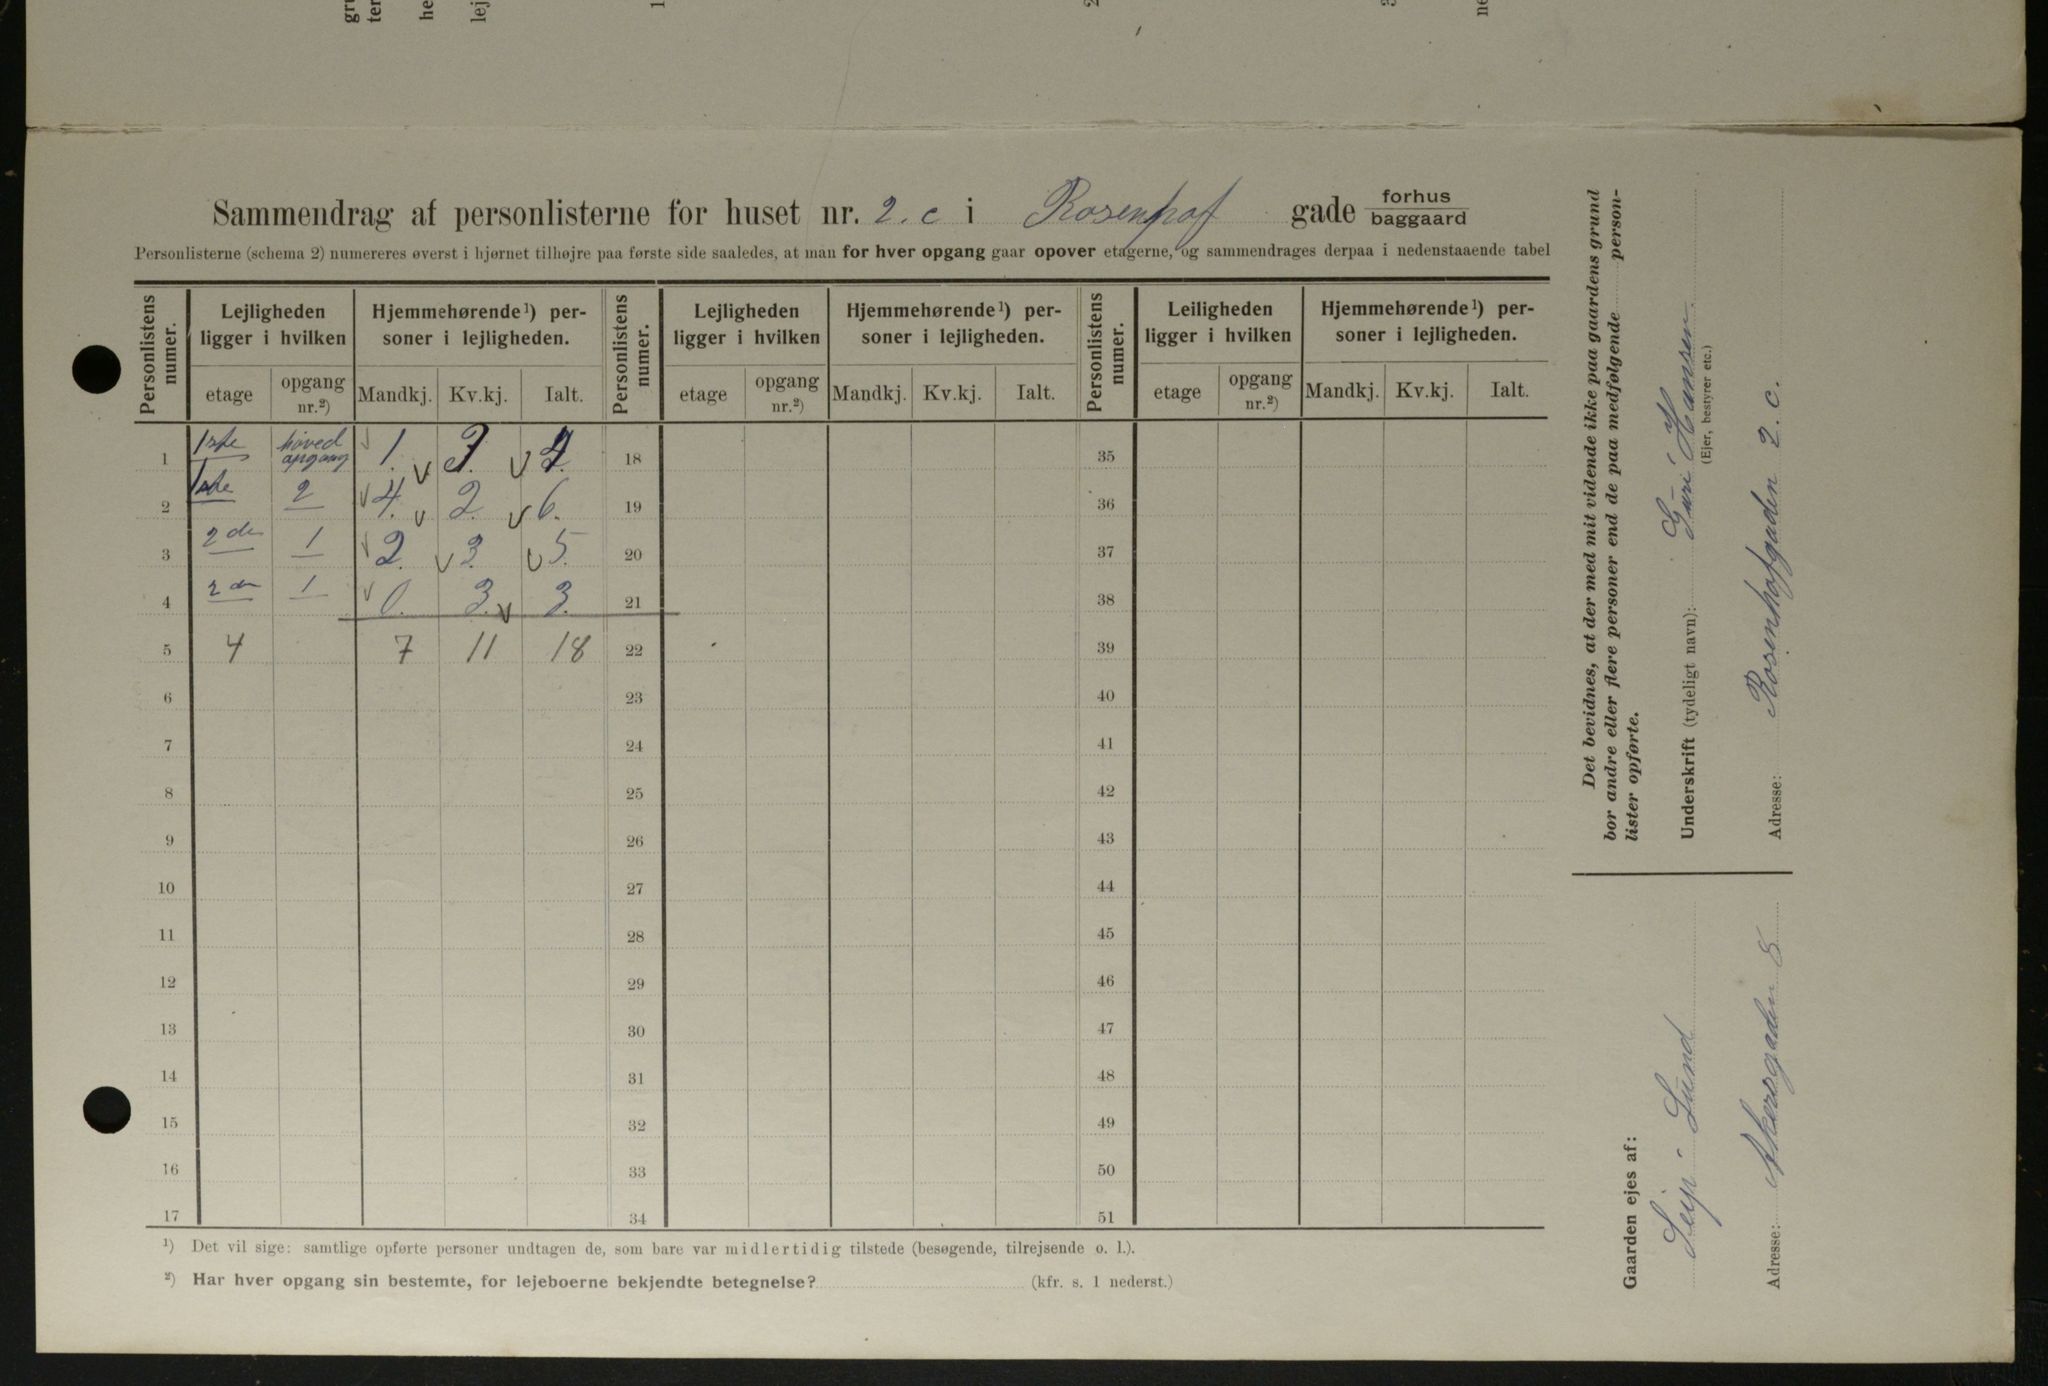 Sammendrag af personlisterne for huset nr. 2.c i Rosenhof gade forhus
baggaard
Personlisterne (schema 2) numereres øverst i hjørnet tilhøjre paa første side saaledes, at man for hver opgang gaar opover etagerne, og sammendrages derpaa i nedenstaaende tabel
Personlistens numer. Lejligheden ligger i hvilken Hjemmehørende¹) per-soner i lejligheden. Personlistens numer. Lejligheden ligger i hvilken Hjemmehørende¹) per-soner i lejligheden. Personlistens numer. Leiligheden ligger i hvilken Hjemmehørende¹) per-soner i lejligheden.
etage opgang nr.²) Mandkj. Kv.kj. Ialt. etage opgang nr.²) Mandkj. Kv.kj. Ialt. etage opgang nr.²) Mandkj. Kv.kj. Ialt.
1 1ste hoved opgang 1. 3. 4. 18 35
2 1ste 2 4. 2. 6. 19 36
3 2den 1 2. 3. 5. 20 37
4 2den 1 0. 3. 3. 21 38
5 4 7 11 18 22 39
6 23 40
7 24 41
8 25 42
9 26 43
10 27 44
11 28 45
12 29 46
13 30 47
14 31 48
15 32 49
16 33 50
17 34 51
¹) Det vil sige: samtlige opførte personer undtagen de, som bare var midlertidig tilstede (besøgende, tilrejsende o. l.).
²) Har hver opgang sin bestemte, for lejeboerne bekjendte betegnelse? (kfr. s. 1 nederst.)
Det bevidnes, at der med mit vidende ikke paa gaardens grund
bor andre eller flere personer end de paa medfølgende person-
lister opførte.
Underskrift (tydeligt navn): Guri Hansen.
(Ejer, bestyrer etc.)
Adresse: Rosenhofgaden 2.c.
Gaarden ejes af:
Lund
Adresse: Akersgaden 8